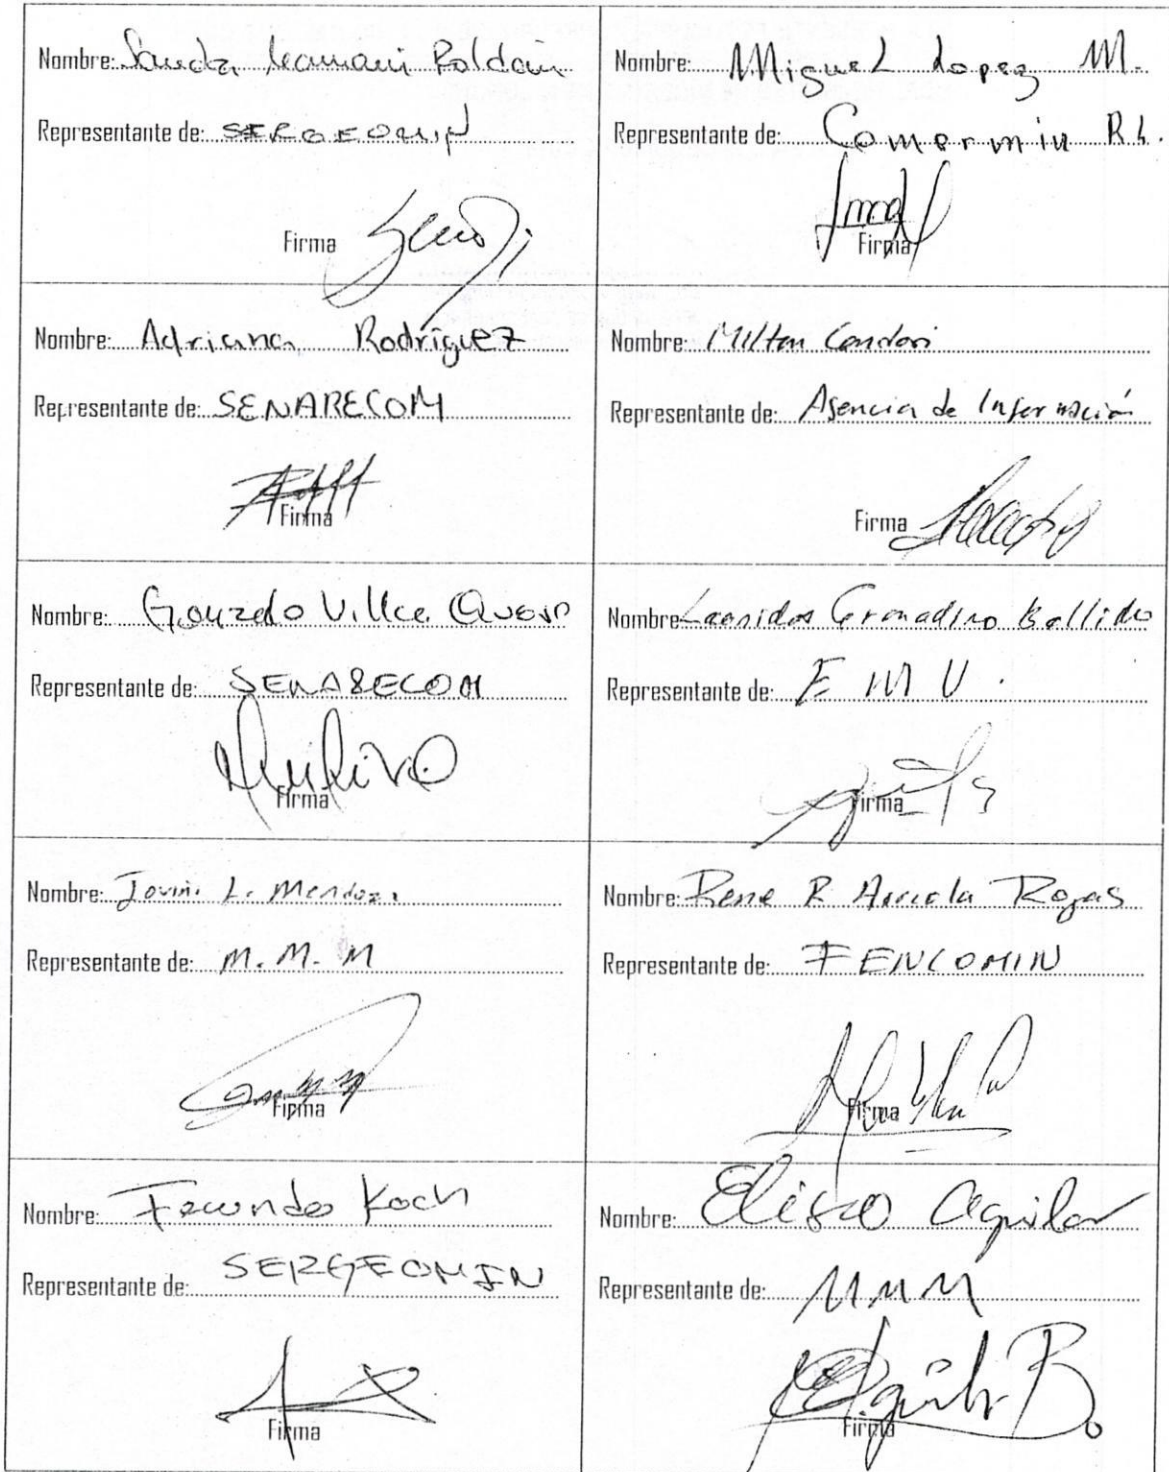 Nombre: Sandra Mamani Roldán
Representante de: SERGEOMIN
Firma
Nombre: Miguel Lopez M.
Representante de: Comermin R.L.
Firma
Nombre: Adriana Rodríguez
Representante de: SENARECOM
Firma
Nombre: Milton Condori
Representante de: Agencia de Información
Firma
Nombre: Gonzalo Villca
Representante de: SENARECOM
Firma
Nombre: Leonidas Granadino Bellido
Representante de: E M V.
Firma
Nombre: L. Mendoza
Representante de: M. M. M
Firma
Nombre: Rene R Arriola Rojas
Representante de: FENCOMIN
Firma
Nombre: Facundo Koch
Representante de: SERGEOMIN
Firma
Nombre: Eliseo Aguilar
Representante de: MMM
Firma